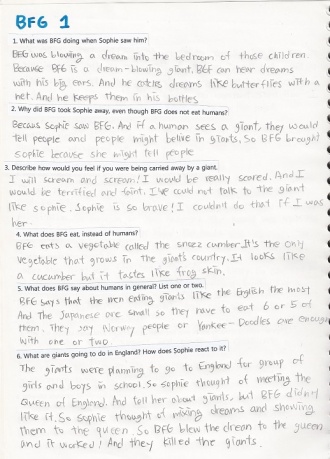 BFG 1
1. What was BFG doing when Sophie saw him?
BFG was blowing a dream into the bedroom of those children.
Because BFG is a dream-blowing giant. BGF can hear dreams
with his big ears. And he catchs dreams like butterflies with a
net. And he keeps them in his bottles
2. Why did BFG took Sophie away, even though BFG does not eat humans?
Becaus Sophie saw BFG. And if a human sees a giant, they would
tell people and people might belive in giants. So BFG brought
sophie because she might tell people
3. Describe how would you feel if you were being carried away by a giant.
I will scream and scream! I would be really scared. And I
would be terrified and faint. I've could not talk to the giant
like sophie. Sophie is so brave! I couldn't do that if I was
her
4. What does BFG eat, instead of humans?
BFG eats a vegetable called the snozz cumber. It's the only
vegetable that grows in the giants country. It looks like
a cucumber but it tastes like frog skin.
5. What does BFG say about humans in general? List one or two.
BFG says that the men eating giants like the English the most
And the Japanese are small so they have to eat 6 or 5 of
them. They say Norway people or Yankee-Doodles are enough
with one or two
6. What are giants going to do in England? How does Sophie react to it?
The giants were planning to go to England for group of
girls and boys in school. So sophie thought of meeting the
Queen of England. And tell her about giants, but BFG didn't
like it. So sophie thought of mixing dreams and showing
them to the queen. So BFG blew the dream to the queen
and it worked! And they killed the giants.